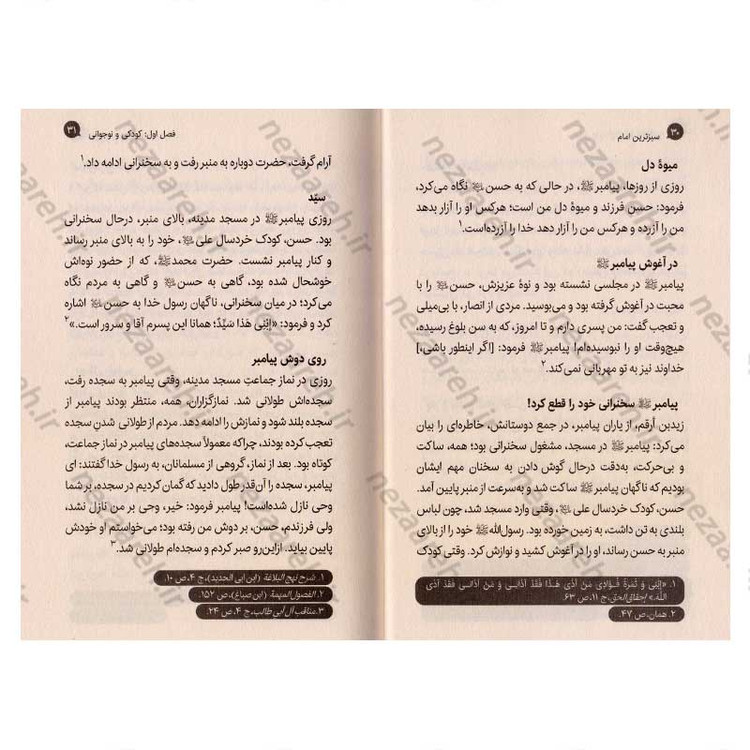 ۳۰ سبزترین امام
میوهٔ دل
روزی از روزها، پیامبرﷺ، در حالی که به حسن نگاه می‌کرد،
فرمود: حسن فرزند و میوهٔ دل من است؛ هرکس او را آزار بدهد
من را آزرده و هرکس من را آزار دهد خدا را آزرده‌است.۱
در آغوش پیامبرﷺ
پیامبرﷺ در مجلسی نشسته بود و نوهٔ عزیزش، حسن را با
محبت در آغوش گرفته بود و می‌بوسید. مردی از انصار، با بی‌میلی
و تعجب گفت: من پسری دارم و تا امروز، که به سن بلوغ رسیده،
هیچ‌وقت او را نبوسیده‌ام! پیامبرﷺ فرمود: [اگر اینطور باشی،]
خداوند نیز به تو مهربانی نمی‌کند.۲
پیامبرﷺ سخنرانی خود را قطع کرد!
زیدبن اَرقم، از یاران پیامبر، در جمع دوستانش، خاطره‌ای را بیان
می‌کرد: پیامبرﷺ در مسجد، مشغول سخنرانی بود؛ همه، ساکت
و بی‌حرکت، به‌دقت درحال گوش دادن به سخنان مهم ایشان
بودیم که ناگهان پیامبرﷺ ساکت شد و به‌سرعت از منبر پایین آمد.
حسن، کودک خردسال علی، وقتی وارد مسجد شد، چون لباس
بلندی به تن داشت، به زمین خورده بود. رسول‌اللهﷺ خود را از بالای
منبر به حسن رساند، او را در آغوش کشید و نوازش کرد. وقتی کودک
۱. «اِنَّنِی وَ ثَمَرَةُ فُؤَادِی مَنْ آذَی هَذَا فَقَدْ آذَانِی وَ مَنْ آذَانِی فَقَدْ آذَی
اللهَ.» احقاق‌الحق، ج ۱۱، ص ۶۳.
۲. همان، ص ۴۷.
فصل اول: کودکی و نوجوانی ۳۱
آرام گرفت، حضرت دوباره به منبر رفت و به سخنرانی ادامه داد.۱
سیّد
روزی پیامبرﷺ در مسجد مدینه، بالای منبر، درحال سخنرانی
بود. حسن، کودک خردسال علی، خود را به بالای منبر رساند
و کنار پیامبر نشست. حضرت محمدﷺ، که از حضور نوه‌اش
خوشحال شده بود، گاهی به حسن و گاهی به مردم نگاه
می‌کرد؛ در میان سخنرانی، ناگهان رسول خدا به حسن اشاره
کرد و فرمود: «اِبْنِی هَذا سَیِّدٌ؛ همانا این پسرم آقا و سرور است.»۲
روی دوش پیامبر
روزی در نماز جماعتِ مسجد مدینه، وقتی پیامبر به سجده رفت،
سجده‌اش طولانی شد. نمازگزاران، همه، منتظر بودند پیامبر از
سجده بلند شود و نمازش را ادامه دهد. مردم از طولانی شدنِ سجده
تعجب کرده بودند، چراکه معمولاً سجده‌های پیامبر در نماز جماعت،
کوتاه بود. بعد از نماز، گروهی از مسلمانان، به رسول خدا گفتند: ای
پیامبر، سجده را آن‌قدر طول دادید که گمان کردیم در سجده، بر شما
وحی نازل شده‌است! پیامبر فرمود: خیر، وحی بر من نازل نشد،
ولی فرزندم، حسن، بر دوش من رفته بود؛ می‌خواستم او خودش
پایین بیاید. ازاین‌رو صبر کردم و سجده‌ام طولانی شد.۳
۱. شرح نهج البلاغة (ابن ابی الحدید)، ج ۴، ص ۱۰.
۲. الفصول المهمة (ابن صباغ)، ص ۱۵۲.
۳. مناقب آل أبی طالب، ج ۴، ص ۲۴.
nezaareh.ir